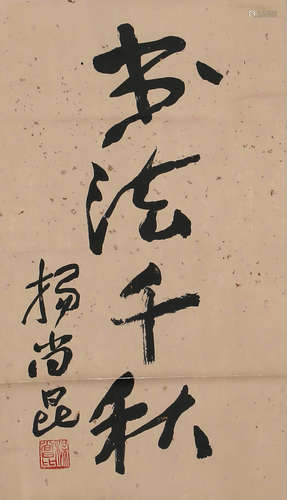 书法千秋
杨尚昆